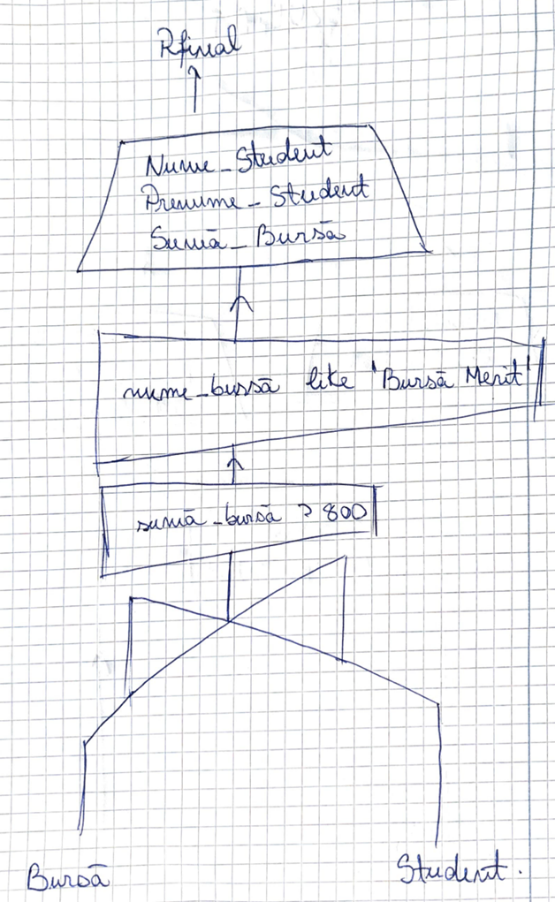 Rfinal
Nume_Student
Prenume_Student
Sumă_Bursă
nume_bursă like 'Bursă Merit'
sumă_bursă > 800
Bursă
Student.